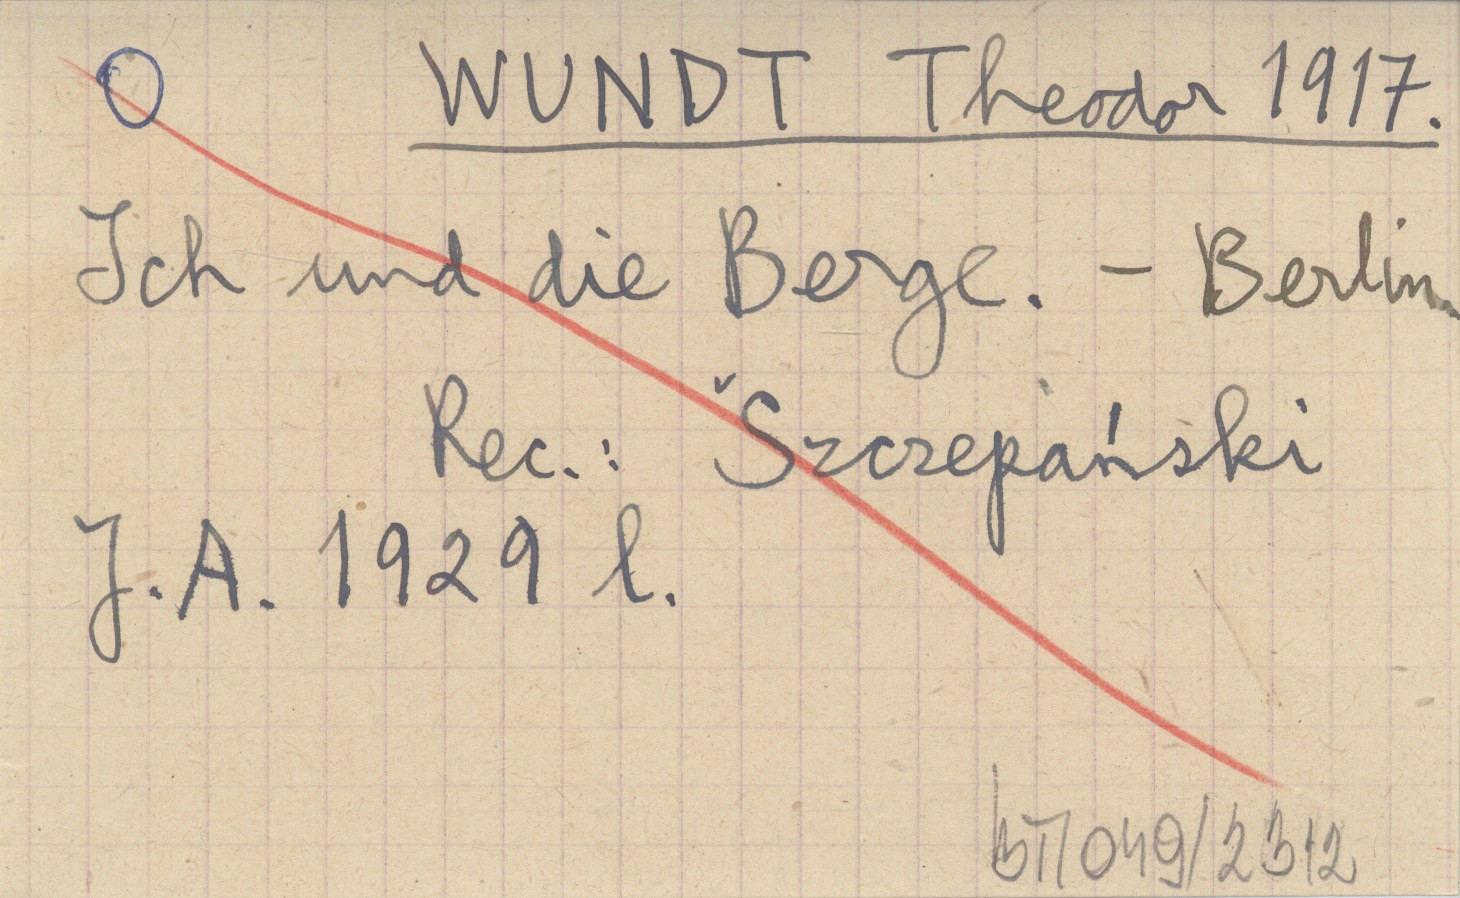 O WUNDT Theodor 1917.
Ich und die Berge. – Berlin.
Rec.: Szczepański
J.A. 1929 l.
БП049/2312